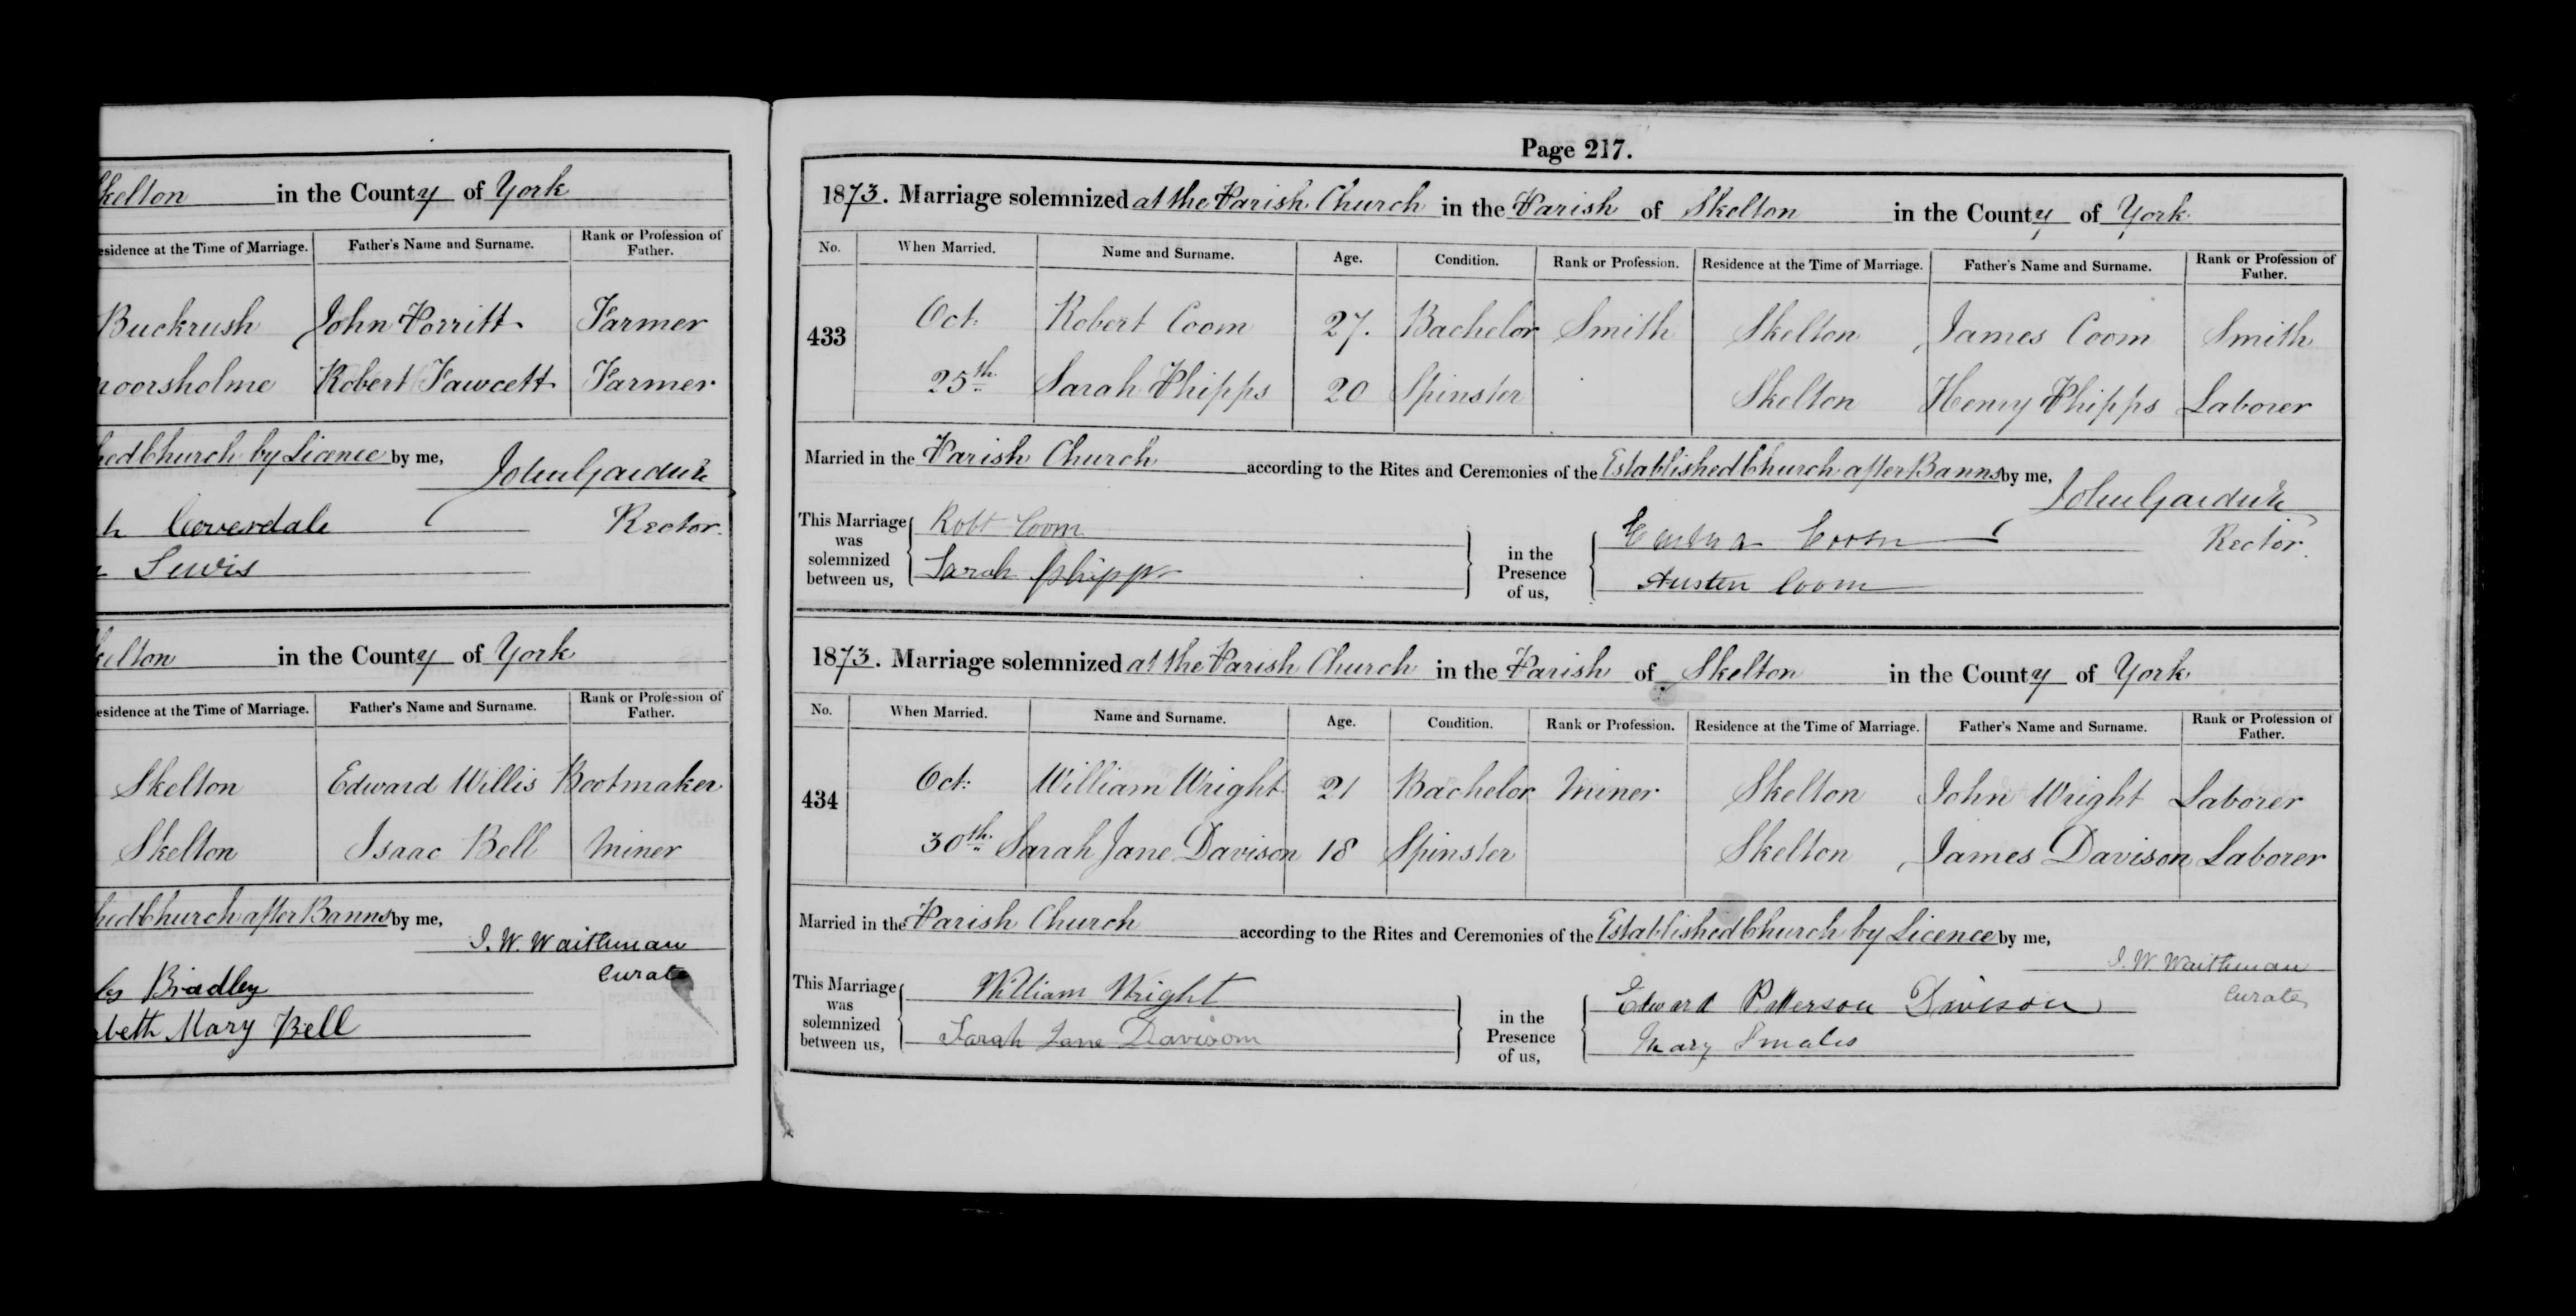 Skelton in the County of York
Residence at the Time of Marriage. Father's Name and Surname. Rank or Profession of Father.
Buckrush John Porritt Farmer
moorsholme Robert Fawcett Farmer
Church by Licence by me, John Gardiner
Coverdale Rector.
Lewis
Skelton in the County of York
Residence at the Time of Marriage. Father's Name and Surname. Rank or Profession of Father.
Skelton Edward Willis Bootmaker
Skelton Isaac Bell Miner
Church after Banns by me,
I. W. Waithman
Curate
Bradley
Mary Bell
Page 217.
1873. Marriage solemnized at the Parish Church in the Parish of Skelton in the County of York
No. When Married. Name and Surname. Age. Condition. Rank or Profession. Residence at the Time of Marriage. Father's Name and Surname. Rank or Profession of Father.
433 Oct: Robert Coom 27. Bachelor Smith Skelton James Coom Smith
25th. Sarah Phipps 20 Spinster Skelton Henry Phipps Laborer
Married in the Parish Church according to the Rites and Ceremonies of the Established Church after Banns by me,
John Gardiner
Rector.
This Marriage was solemnized between us, Robt Coom
Sarah Phipps
in the Presence of us, Coom
Austen Coom
1873. Marriage solemnized at the Parish Church in the Parish of Skelton in the County of York
No. When Married. Name and Surname. Age. Condition. Rank or Profession. Residence at the Time of Marriage. Father's Name and Surname. Rank or Profession of Father.
434 Oct: William Wright 21 Bachelor Miner Skelton John Wright Laborer
30th. Sarah Jane Davison 18 Spinster Skelton James Davison Laborer
Married in the Parish Church according to the Rites and Ceremonies of the Established Church by Licence by me,
I. W. Waithman
Curate
This Marriage was solemnized between us, William Wright
Sarah Jane Davisom
in the Presence of us, Edward Patterson Davison
Mary Smales